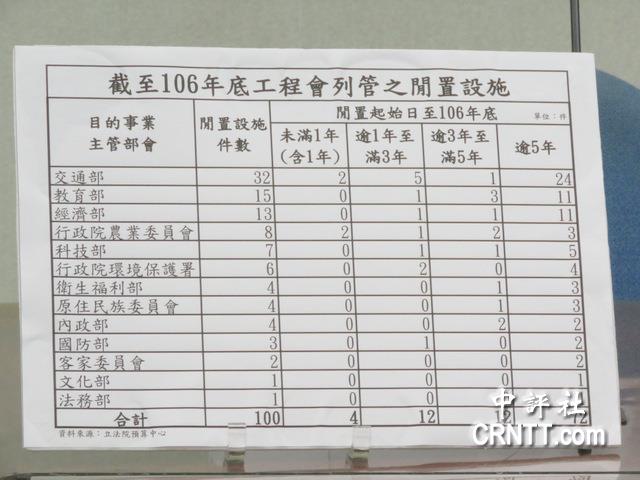 截至106年底工程會列管之閒置設施
目的事業
主管部會
閒置設施
件數
閒置起始日至106年底
單位：件
未滿1年
(含1年)
逾1年至
滿3年
逾3年至
滿5年
逾5年
交通部 32 2 5 1 24
教育部 15 0 1 3 11
經濟部 13 0 1 1 11
行政院農業委員會 8 2 1 2 3
科技部 7 0 1 1 5
行政院環境保護署 6 0 2 0 4
衛生福利部 4 0 0 1 3
原住民族委員會 4 0 0 1 3
內政部 4 0 0 2 2
國防部 3 0 1 0 2
客家委員會 2 0 0 0 2
文化部 1 0 0 0 1
法務部 1 0 0
合計 100 4 12
資料來源：立法院預算中心
中評社
CRNTT.com